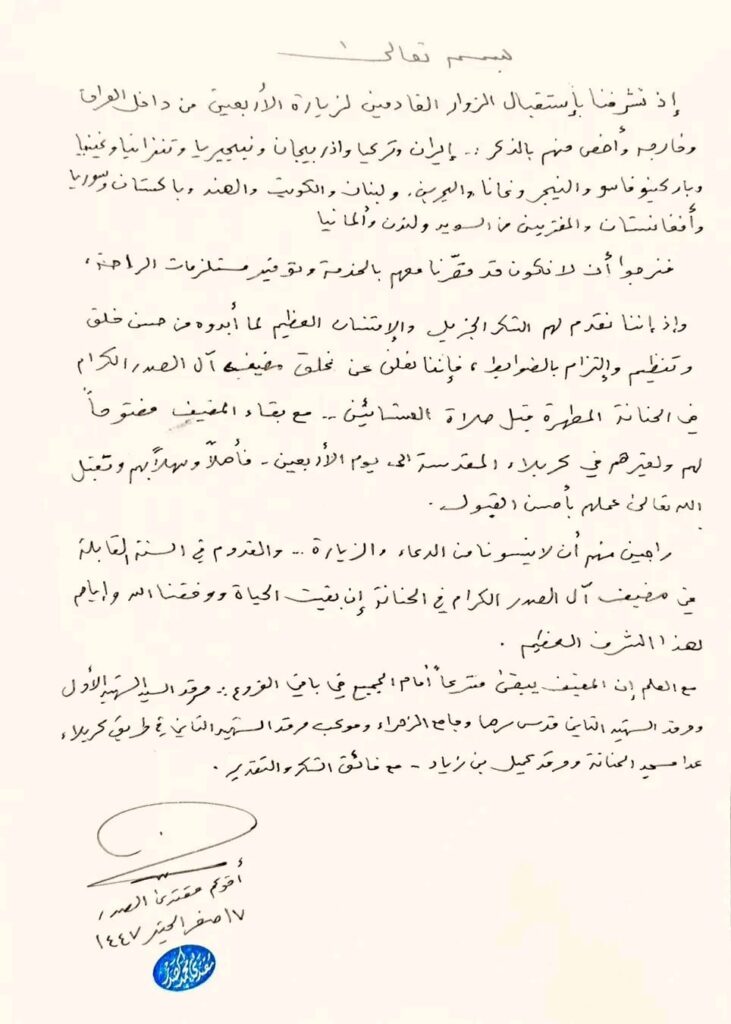 بسمه تعالى
إذ تشرفنا بإستقبال الزوار القادمين لزيارة الأربعين من داخل العراق
وخارجه وأخص منهم بالذكر :. إيران وتركيا واذربيجان ونيجيريا وتنزانيا وغينيا
وباركينوفاسو والنيجر وغانا والبحرين. ولبنان والكويت والهند وباكستان وسوريا
وأفغانستان والمغتربين من السويد ولندن وألمانيا
فنرجوا أن لا نكون قد قصّرنا معهم بالخدمة وتوفير مستلزمات الراحة،
وإذ إننا نقدم لهم الشكر الجزيل والإمتنان العظيم لما أبدوه من حسن خلق
وتنظيم وإلتزام بالضوابط، فإننا نعلن عن غلق مضيف آل الصدر الكرام
في الحنانة المطهرة قبل صلاة العشائين .. مع بقاء المضيف مفتوحاً
لهم ولغيرهم في كربلاء المقدسة الى يوم الأربعين - فأهلاً وسهلاً بهم وتقبل
الله تعالى عملهم بأحسن القبول.
راجين منهم أن لا ينسونا من الدعاء والزيارة .. والقدوم في السنة القابلة
في مضيف آل الصدر الكرام في الحنانة إن بقيت الحياة ووفقنا الله وإياهم
لهذا الشرف العظيم .
مع العلم إن المضيف يبقى مشرعاً أمام الجميع في باقي الفروع :. مرقد السيد الشهيد الأول
ومرقد الشهيد الثاني قدس سرهما وجامع الزهراء وموكب مرقد الشهيد الثاني في طريق كربلاء
عدا مسجد الحنانة ومرقد كميل بن زياد - مع فائق الشكر والتقدير.
أقولكم مقتدى الصدر
١٧ صفر الخير ١٤٤٧